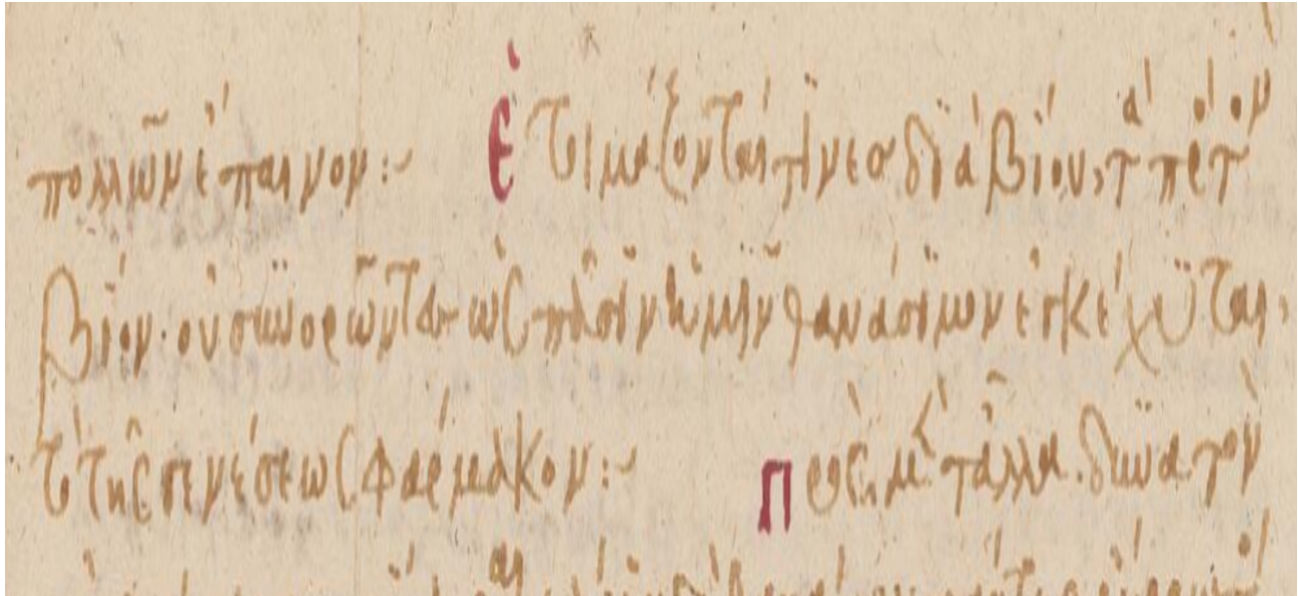 πολλῶν ἔπαινον :~ Ἑτιμάζονταί τινες διὰ βίου, τὰ πρὸς τὸν
βίον· οὐ συνορῶντα ὡς πᾶσιν ἡμῖν θανάσιμον ἐγκέχυται,
τὸ τῆς γενέσεως φάρμακον :~ Πρὸς μὲν τἆλλα δυνατὸν